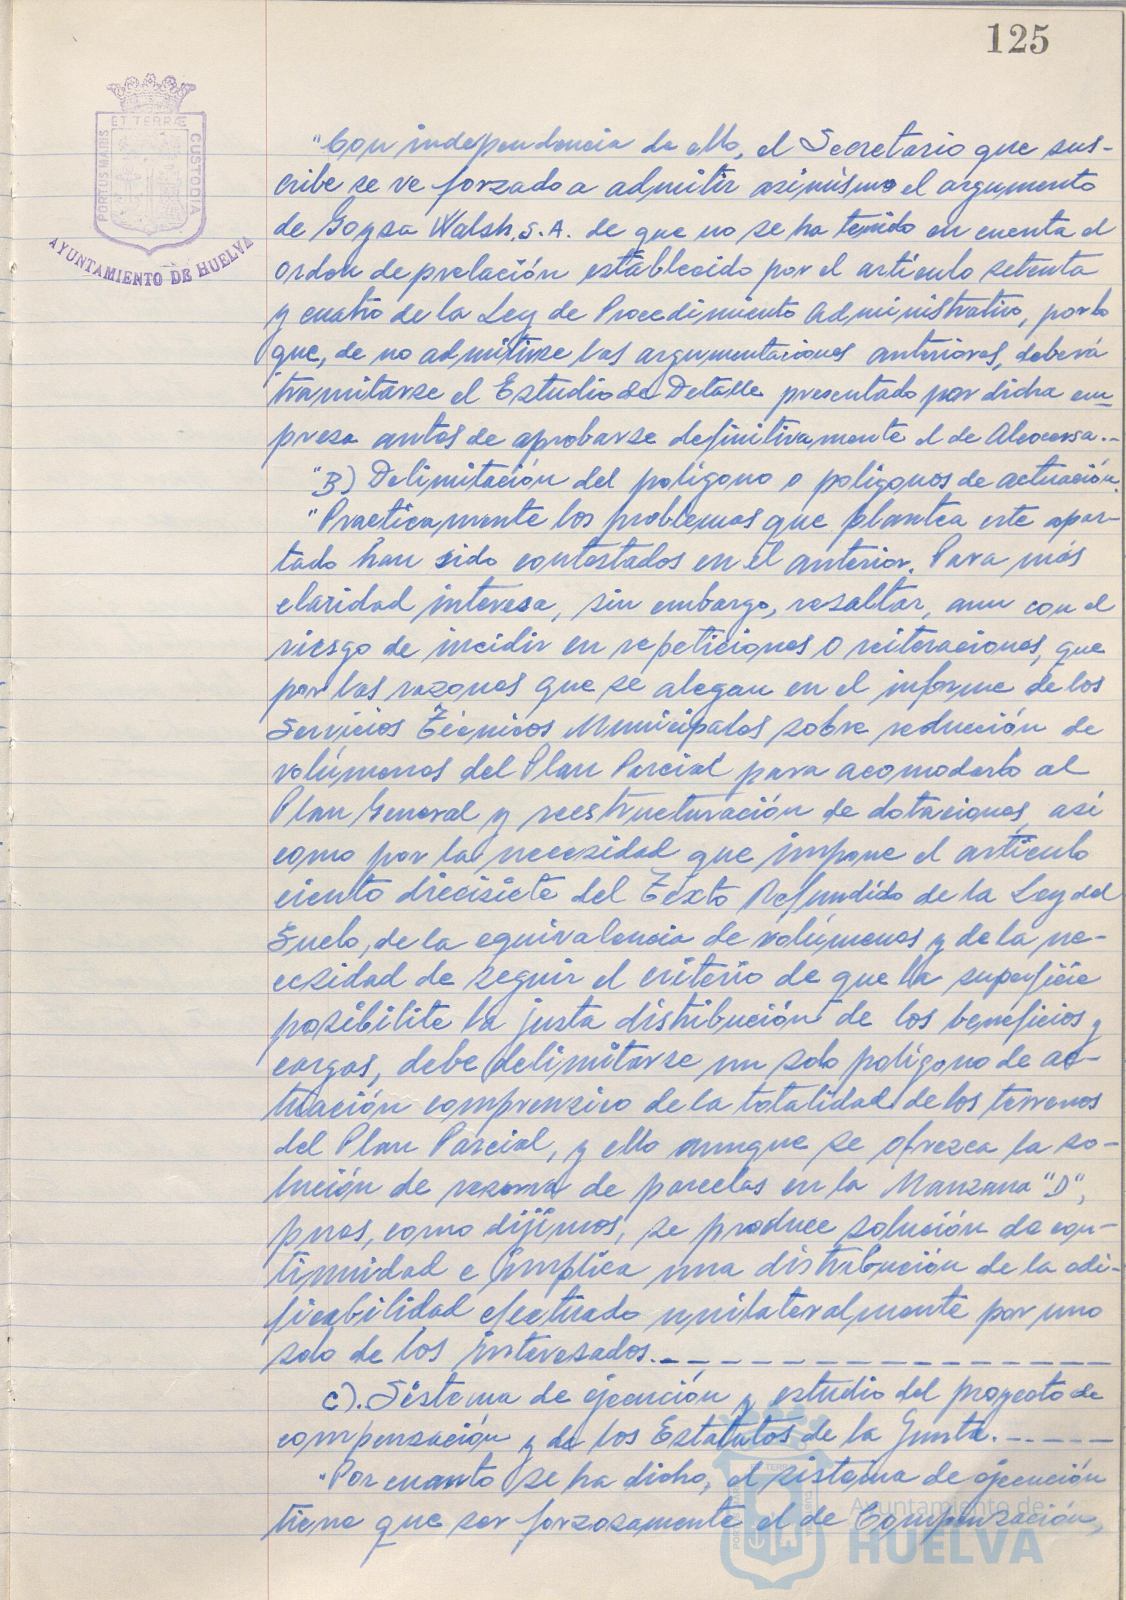 125
ET TERRÆ
PORTUS MARIS
CUSTODIA
AYUNTAMIENTO DE HUELVA
"Con independencia de ello, el Secretario que sus-
cribe se ve forzado a admitir asimismo el argumento
de Goysa Walsh, S.A. de que no se ha tenido en cuenta el
orden de prelación establecido por el artículo setenta
y cuatro de la Ley de Procedimiento Administrativo, por lo
que, de no admitirse las argumentaciones anteriores, deberá
tramitarse el Estudio de Detalle presentado por dicha em-
presa antes de aprobarse definitivamente el de Alcocersa.-
"B) Delimitación del polígono o polígonos de actuación.
"Practicamente los problemas que plantea este apar-
tado han sido contestados en el anterior. Para más
claridad interesa, sin embargo, resaltar, aun con el
riesgo de incidir en repeticiones o reiteraciones, que
por las razones que se alegan en el informe de los
Servicios Técnicos Municipales sobre reducción de
volúmenes del Plan Parcial para acomodarlo al
Plan General y reestructuración de dotaciones, así
como por la necesidad que impone el artículo
ciento diecisiete del Texto Refundido de la Ley del
Suelo, de la equivalencia de volúmenes y de la ne-
cesidad de seguir el criterio de que la superficie
posibilite la justa distribución de los beneficios y
cargas, debe delimitarse un solo polígono de ac-
tuación comprensivo de la totalidad de los terrenos
del Plan Parcial, y ello aunque se ofrezca la so-
lución de reserva de parcelas en la Manzana "D",
pues, como dijimos, se produce solución de con-
tinuidad e implica una distribución de la edi-
ficabilidad efectuado unilateralmente por uno
solo de los interesados.- - - - - - - - - - - - - - -
C). Sistema de ejecución y estudio del proyecto de
compensación y de los Estatutos de la Junta. - - - - -
"Por cuanto se ha dicho, el sistema de ejecución
tiene que ser forzosamente el de Compensación,
Ayuntamiento de
HUELVA